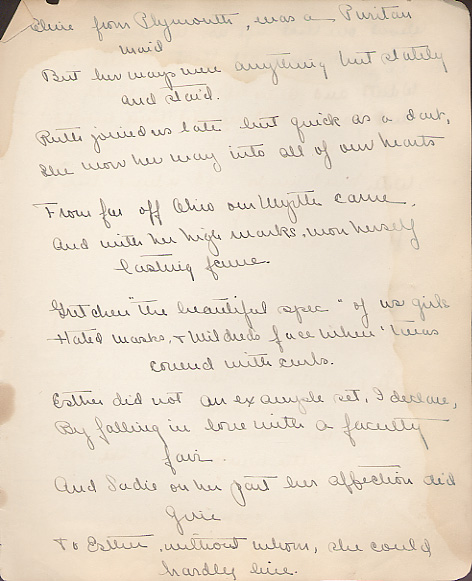 Olive from Plymouth, was a Puritan
maid
But her ways were anything but stately
and staid.
Ruth joined us late but quick as a dart,
She won her way into all of our hearts
From far off Ohio our Myrtle came,
And with her high marks, won herself
lasting fame.
Gretchen "the beautiful spec" of us girls
Hated marks, & Mildred's face when 'twas
covered with curls.
Esther did not an example set, I declare,
By falling in love with a faculty
fair.
And Sadie on her part her affection did
give
To Esther, without whom, she could
hardly live.